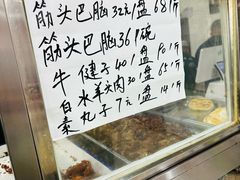 筋头巴脑32元/盘 68/斤
筋头巴脑36/碗
牛腱子40/盘 80/斤
白水羊头肉30/盘 65/斤
素丸子7元/盘 14/斤